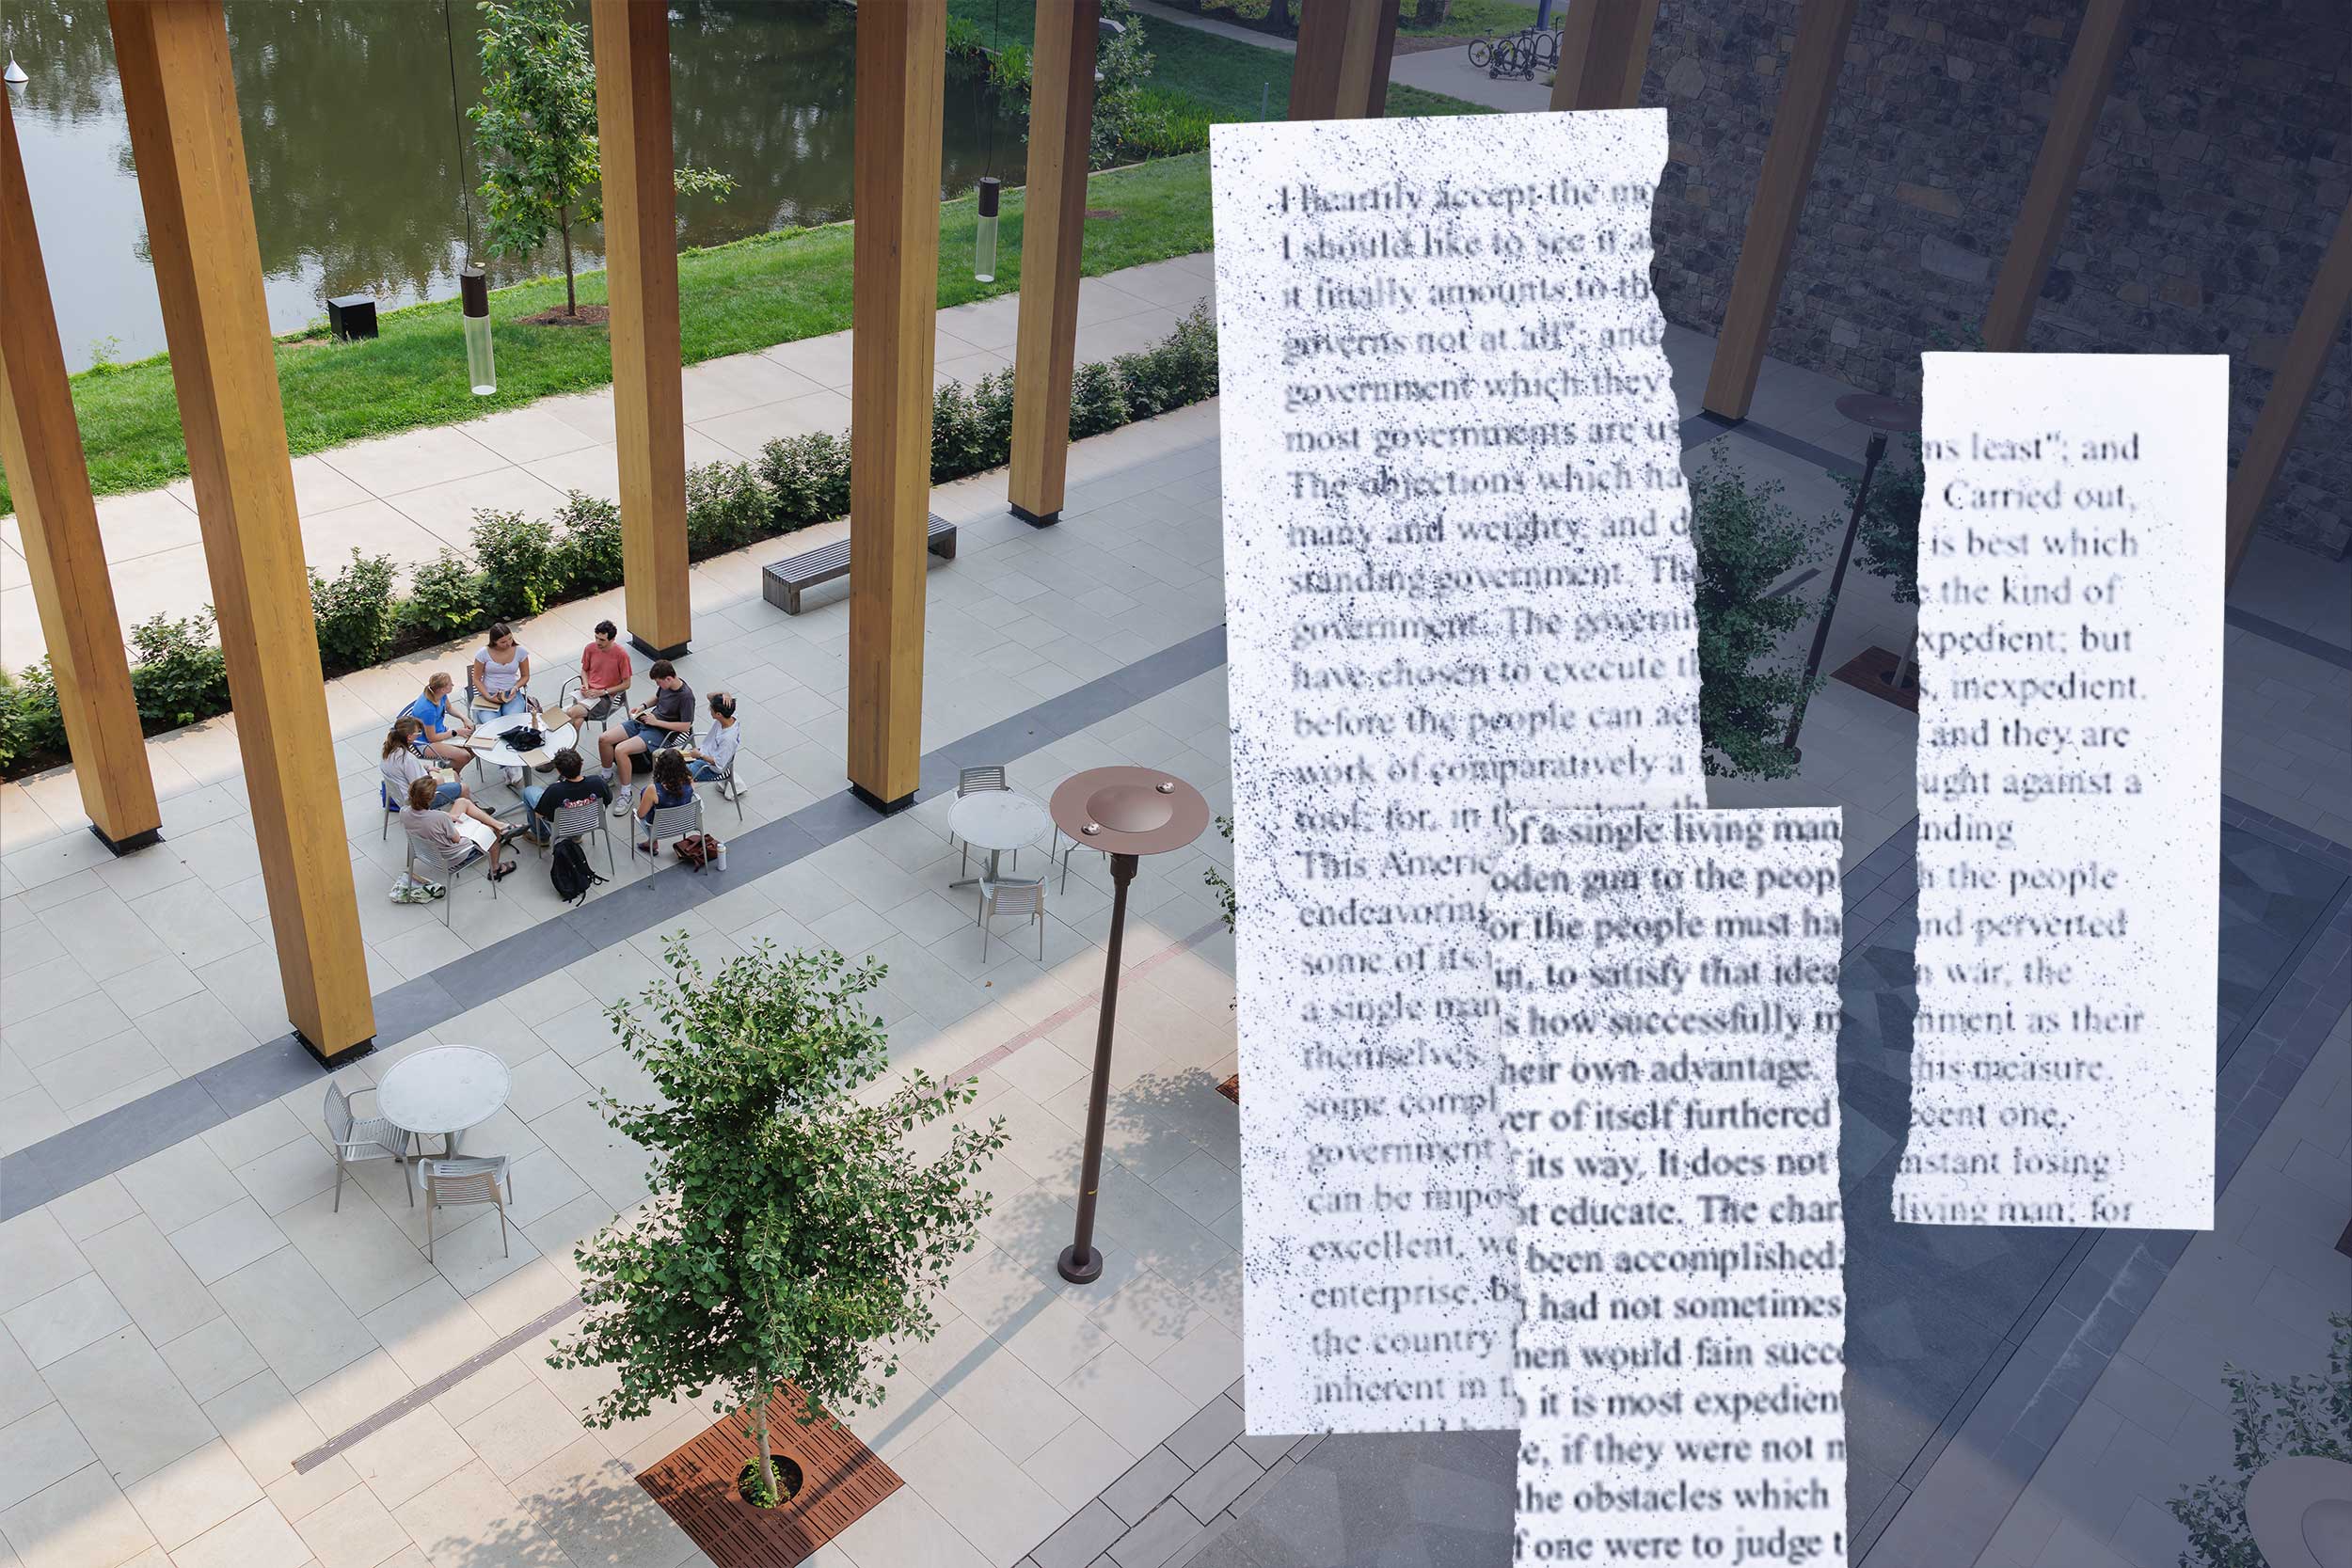 I heartily accept the mo
I should like to see it ac
it finally amounts to th
governs not at all"; and
government which they
most governments are u
The objections which ha
many and weighty, and d
standing government. Th
government. The governm
have chosen to execute th
before the people can act
work of comparatively a
tool; for, in th
This Americ
endeavoring
some of its
a single man
themselves.
some compl
government
can be impos
excellent, we
enterprise, b
the country
inherent in t
of a single living man
oden gun to the peop
or the people must ha
n, to satisfy that idea
s how successfully m
heir own advantage.
ver of itself furthered
its way. It does not
ot educate. The char
been accomplished;
had not sometimes
men would fain succe
it is most expedient
e, if they were not m
the obstacles which
f one were to judge t
ns least"; and
Carried out,
is best which
e the kind of
xpedient; but
s, inexpedient.
and they are
ught against a
nding
h the people
nd perverted
n war, the
nment as their
his measure.
ecent one,
nstant losing
living man; for